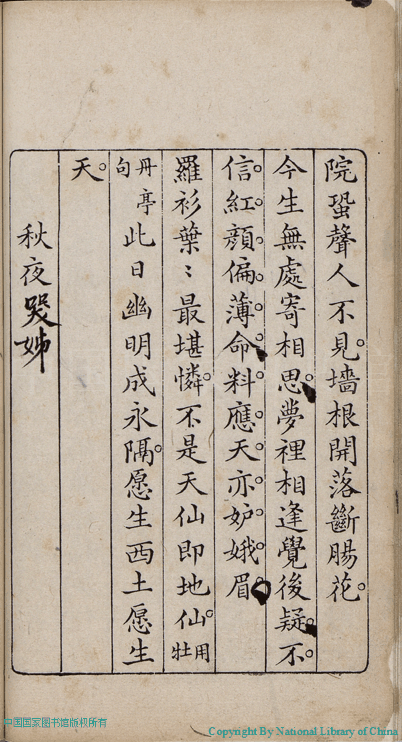 院蛩聲人不見。墻根開落斷腸花。
今生無處寄相思。夢裡相逢覺後疑。不
信紅顏偏薄命。料應天亦妒娥眉。
羅衫葉〻最堪憐。不是天仙即地仙。用牡
丹亭句此日幽明成永隔。愿生西土愿生
天。
秋夜哭姊
中国国家图书馆版权所有
Copyright By National Library of China